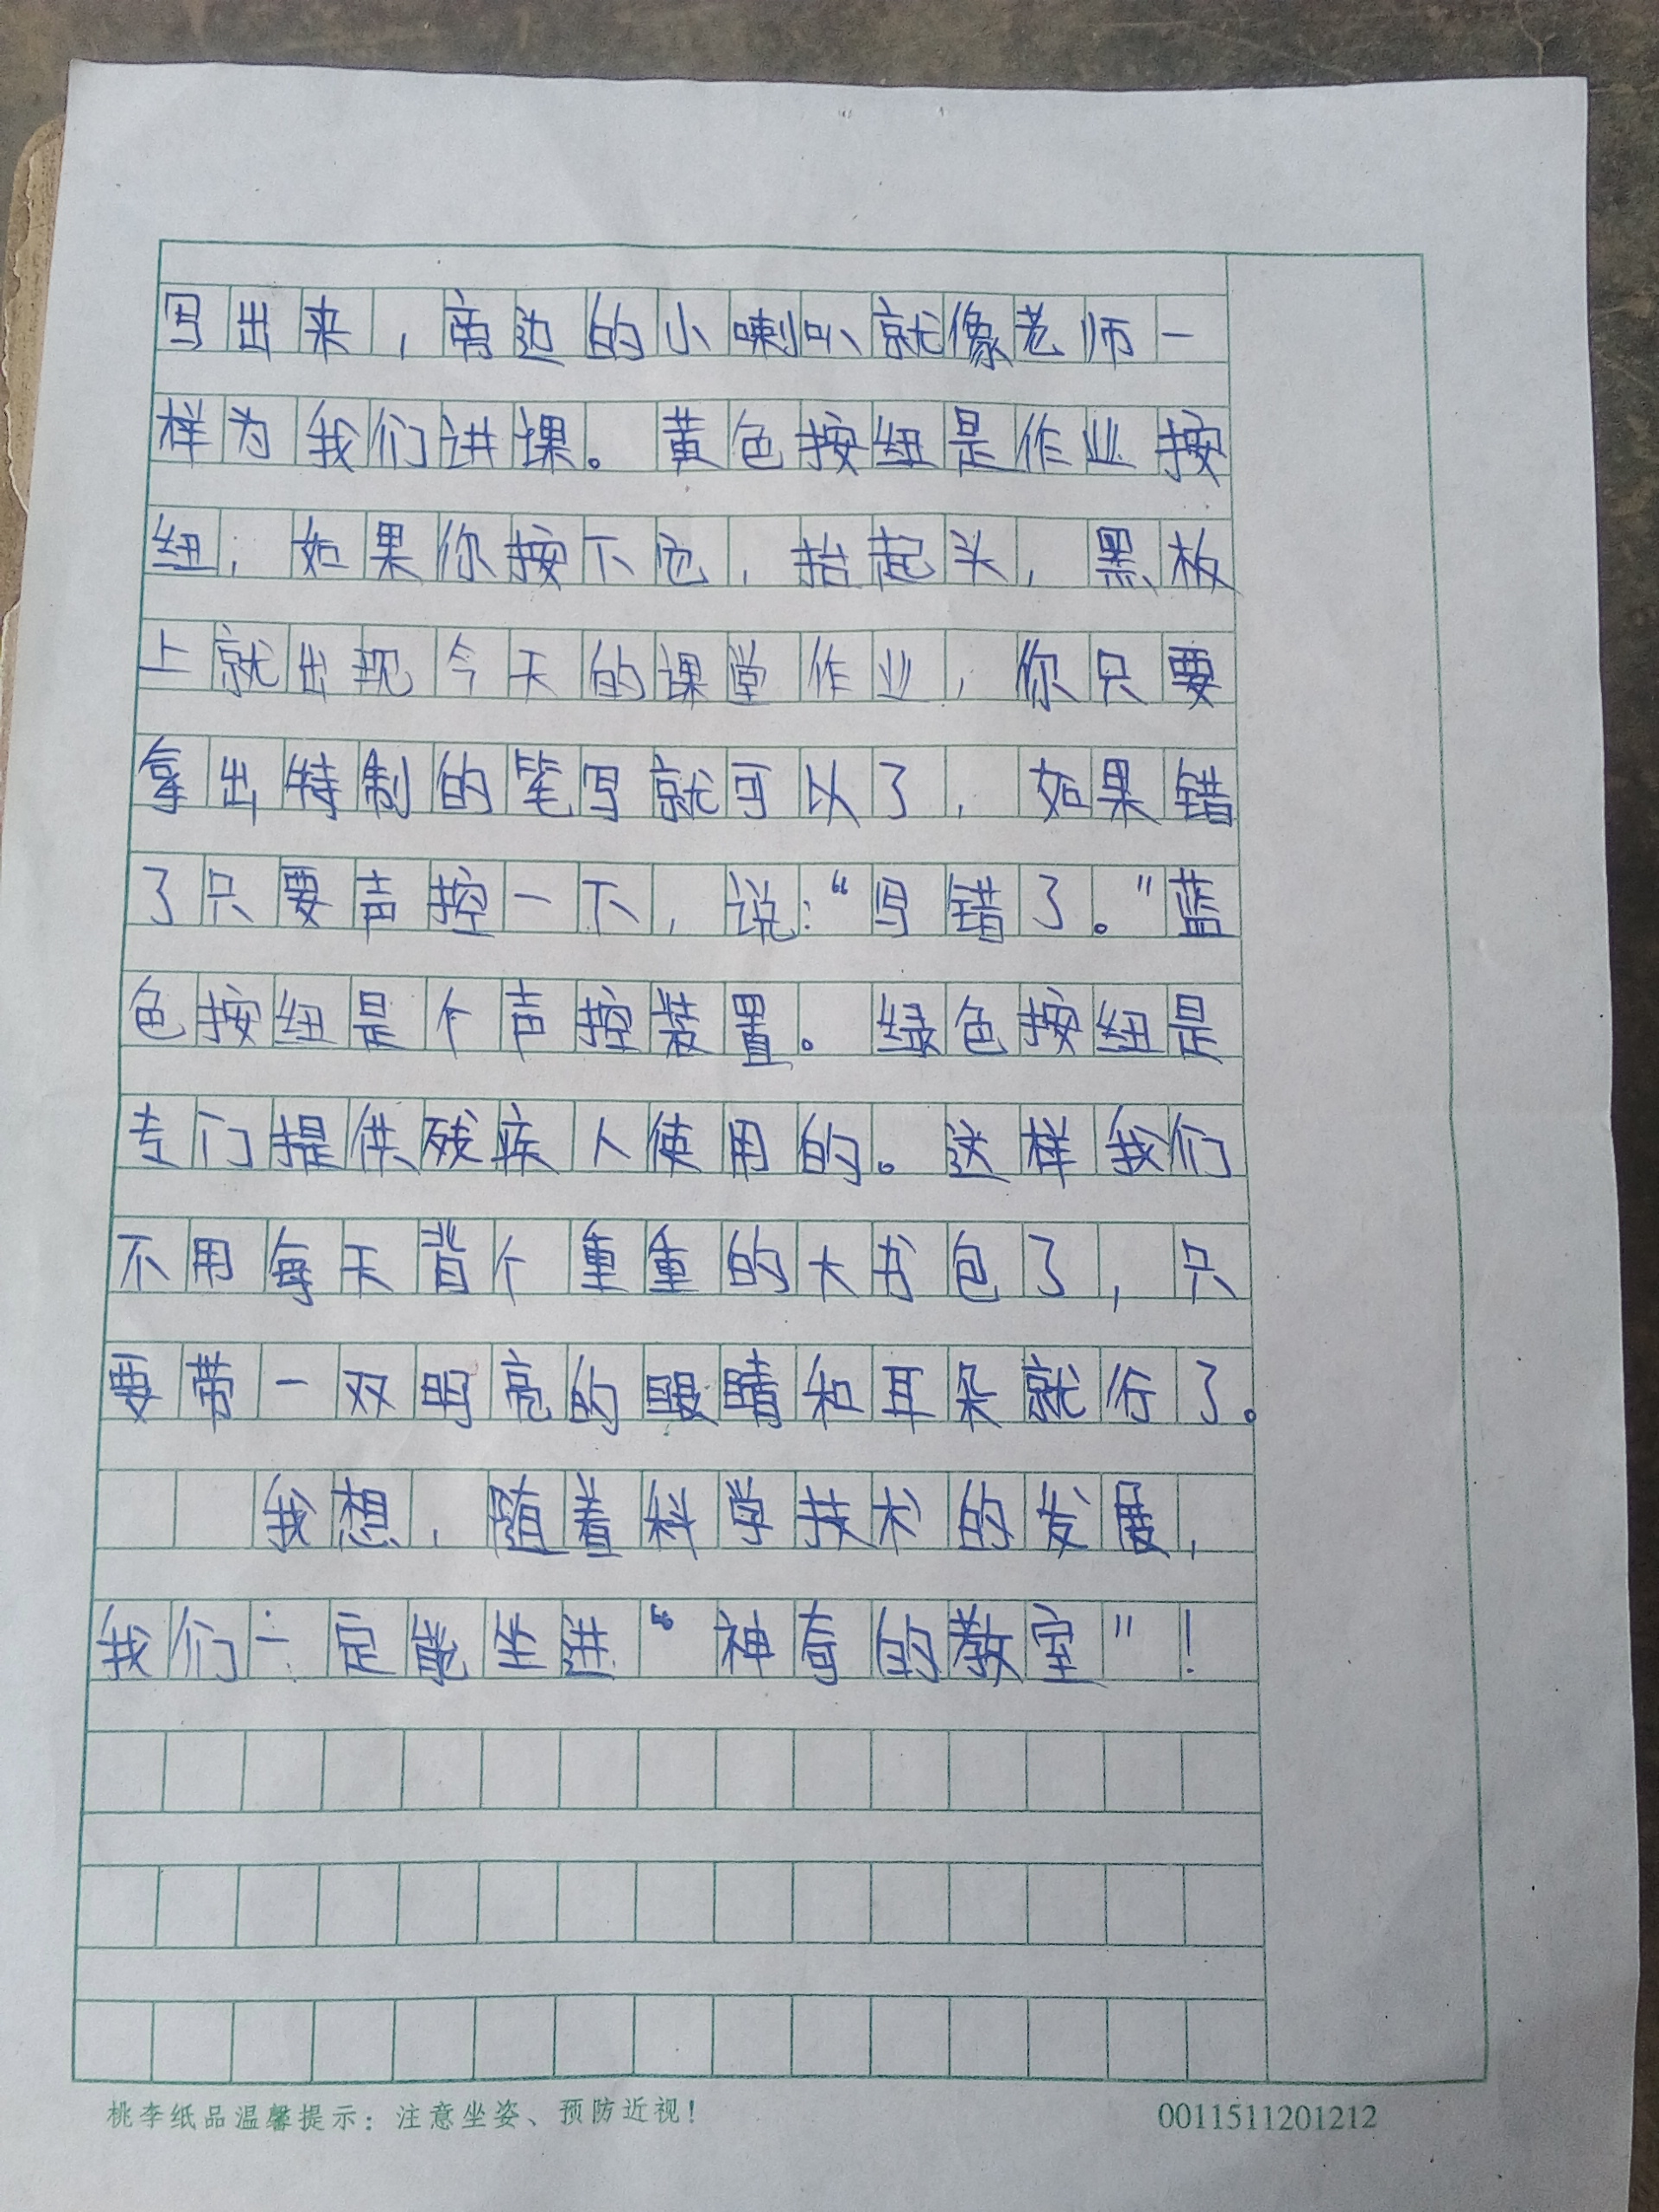 写出来，旁边的小喇叭就像老师一
样为我们讲课。黄色按纽是作业按
纽，如果你按下它，抬起头，黑板
上就出现今天的课堂作业，你只要
拿出特制的笔写就可以了，如果错
了只要声控一下，说：“写错了。”蓝
色按纽是个声控装置。绿色按纽是
专门提供残疾人使用的。这样我们
不用每天背个重重的大书包了，只
要带一双明亮的眼睛和耳朵就行了。
我想，随着科学技术的发展，
我们一定能坐进“神奇的教室”！
桃李纸品温馨提示：注意坐姿、预防近视！
0011511201212